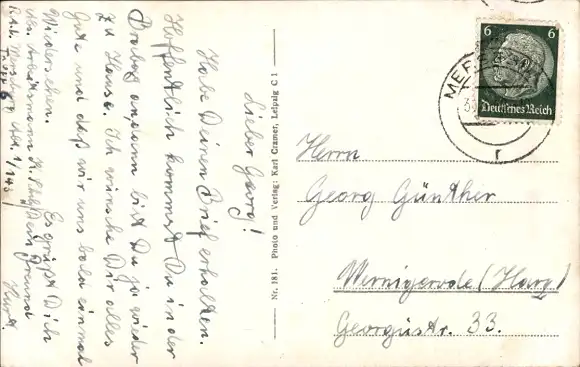 Lieber Georg!
Habe Deinen Brief erhalten.
Hoffentlich kommst Du in der
an, wenn bist Du ja wieder
zu Hause. Ich wünsche Dir alles
Gute und daß wir uns bald einmal
Wiedersehen.
Es grüßt Dich
Dein Freund
Kurt
Abs. Arbeitsmann K.
R.A.D. Abt. 1/143
Trupp 6
Nr. 181. Photo und Verlag: Karl Cramer, Leipzig C 1
6 6
Deutsches Reich
MERSE
Herrn
Georg Günther
Wernigerode (Harz)
Georgiistr. 33.